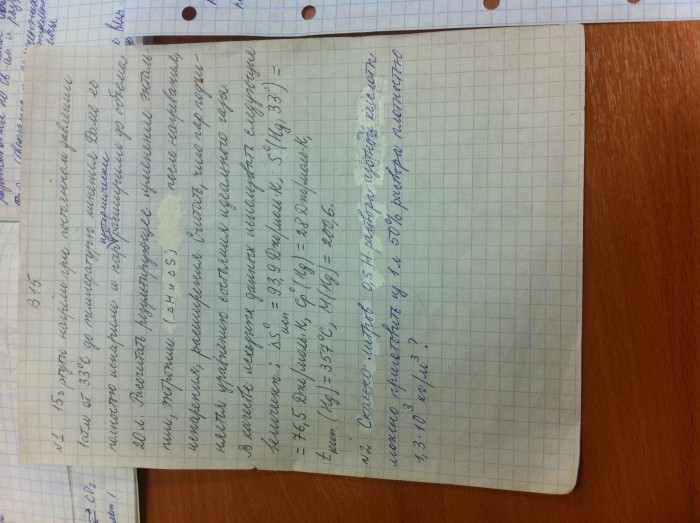 В 15
№1 15 г ртути нагрели при постоянном давлении
1 атм от 33°С до температуры кипения. Далее её
полностью испарили и пар расширили до объема
изотермически
20 л. Рассчитать результирующее изменение энталь-
пии, энтропии (ΔH и ΔS) после нагревания,
испарения, расширения. Считать, что пар подчи-
няется уравнению состояния идеального газа
В качестве исходных данных использовать следующие
величины: ΔS°исп = 93,9 Дж/моль·К, S°(Hg, 33°) =
= 76,5 Дж/моль·К, Cp°(Hg) = 28 Дж/моль·К,
tкип.(Hg) = 357°С, M(Hg) = 200,6.
№2 Сколько литров 0,5 Н раствора азотной кислоты
можно приготовить из 1 л 50% раствора плотностью
1,3·10³ кг/м³?
CP₂